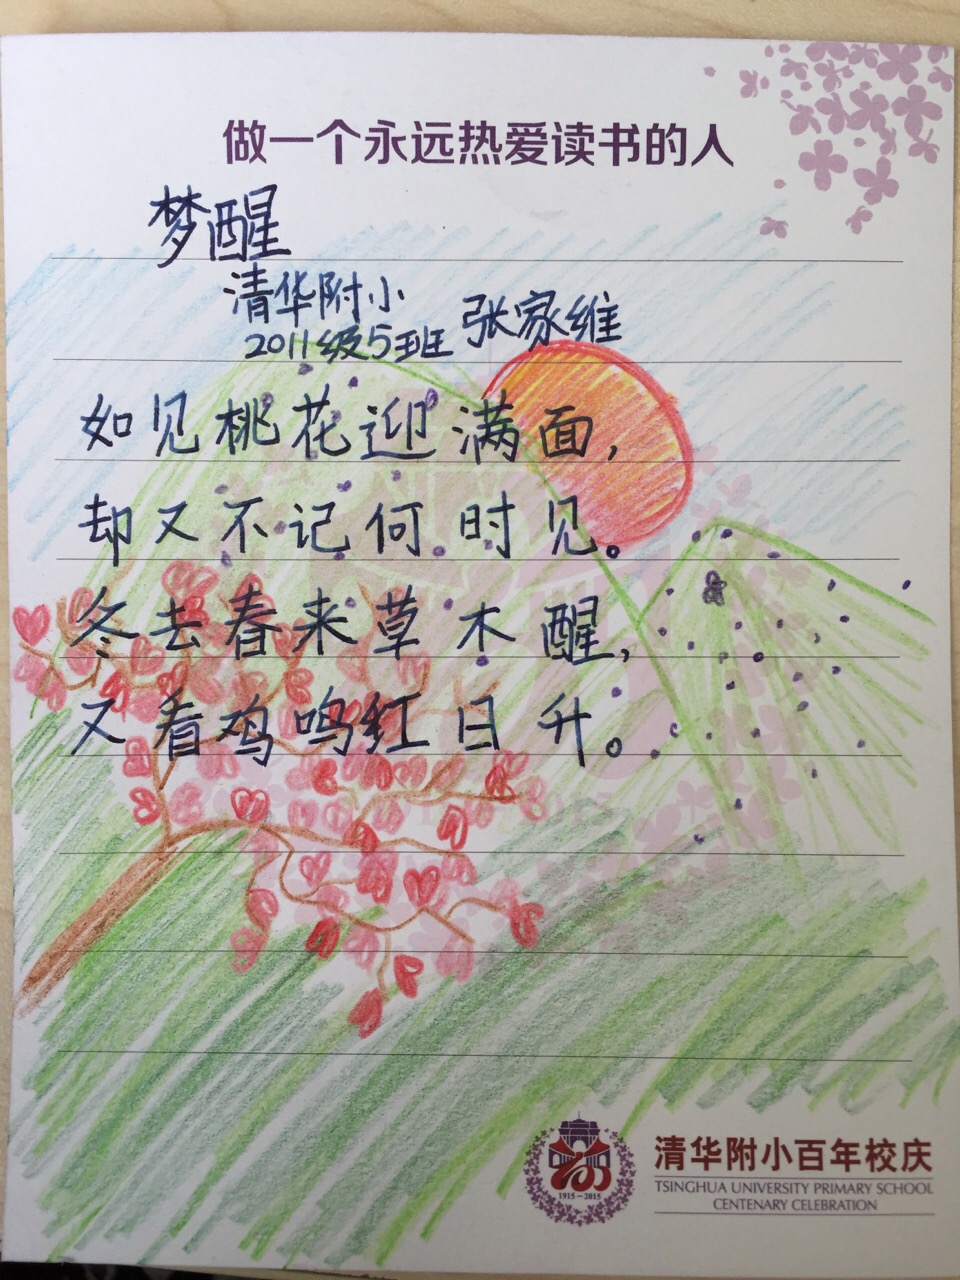 做一个永远热爱读书的人
梦醒
清华附小
2011级5班 张家维
如见桃花迎满面，
却又不记何时见。
冬去春来草木醒，
又看鸡鸣红日升。
1915-2015
清华附小百年校庆
TSINGHUA UNIVERSITY PRIMARY SCHOOL
CENTENARY CELEBRATION